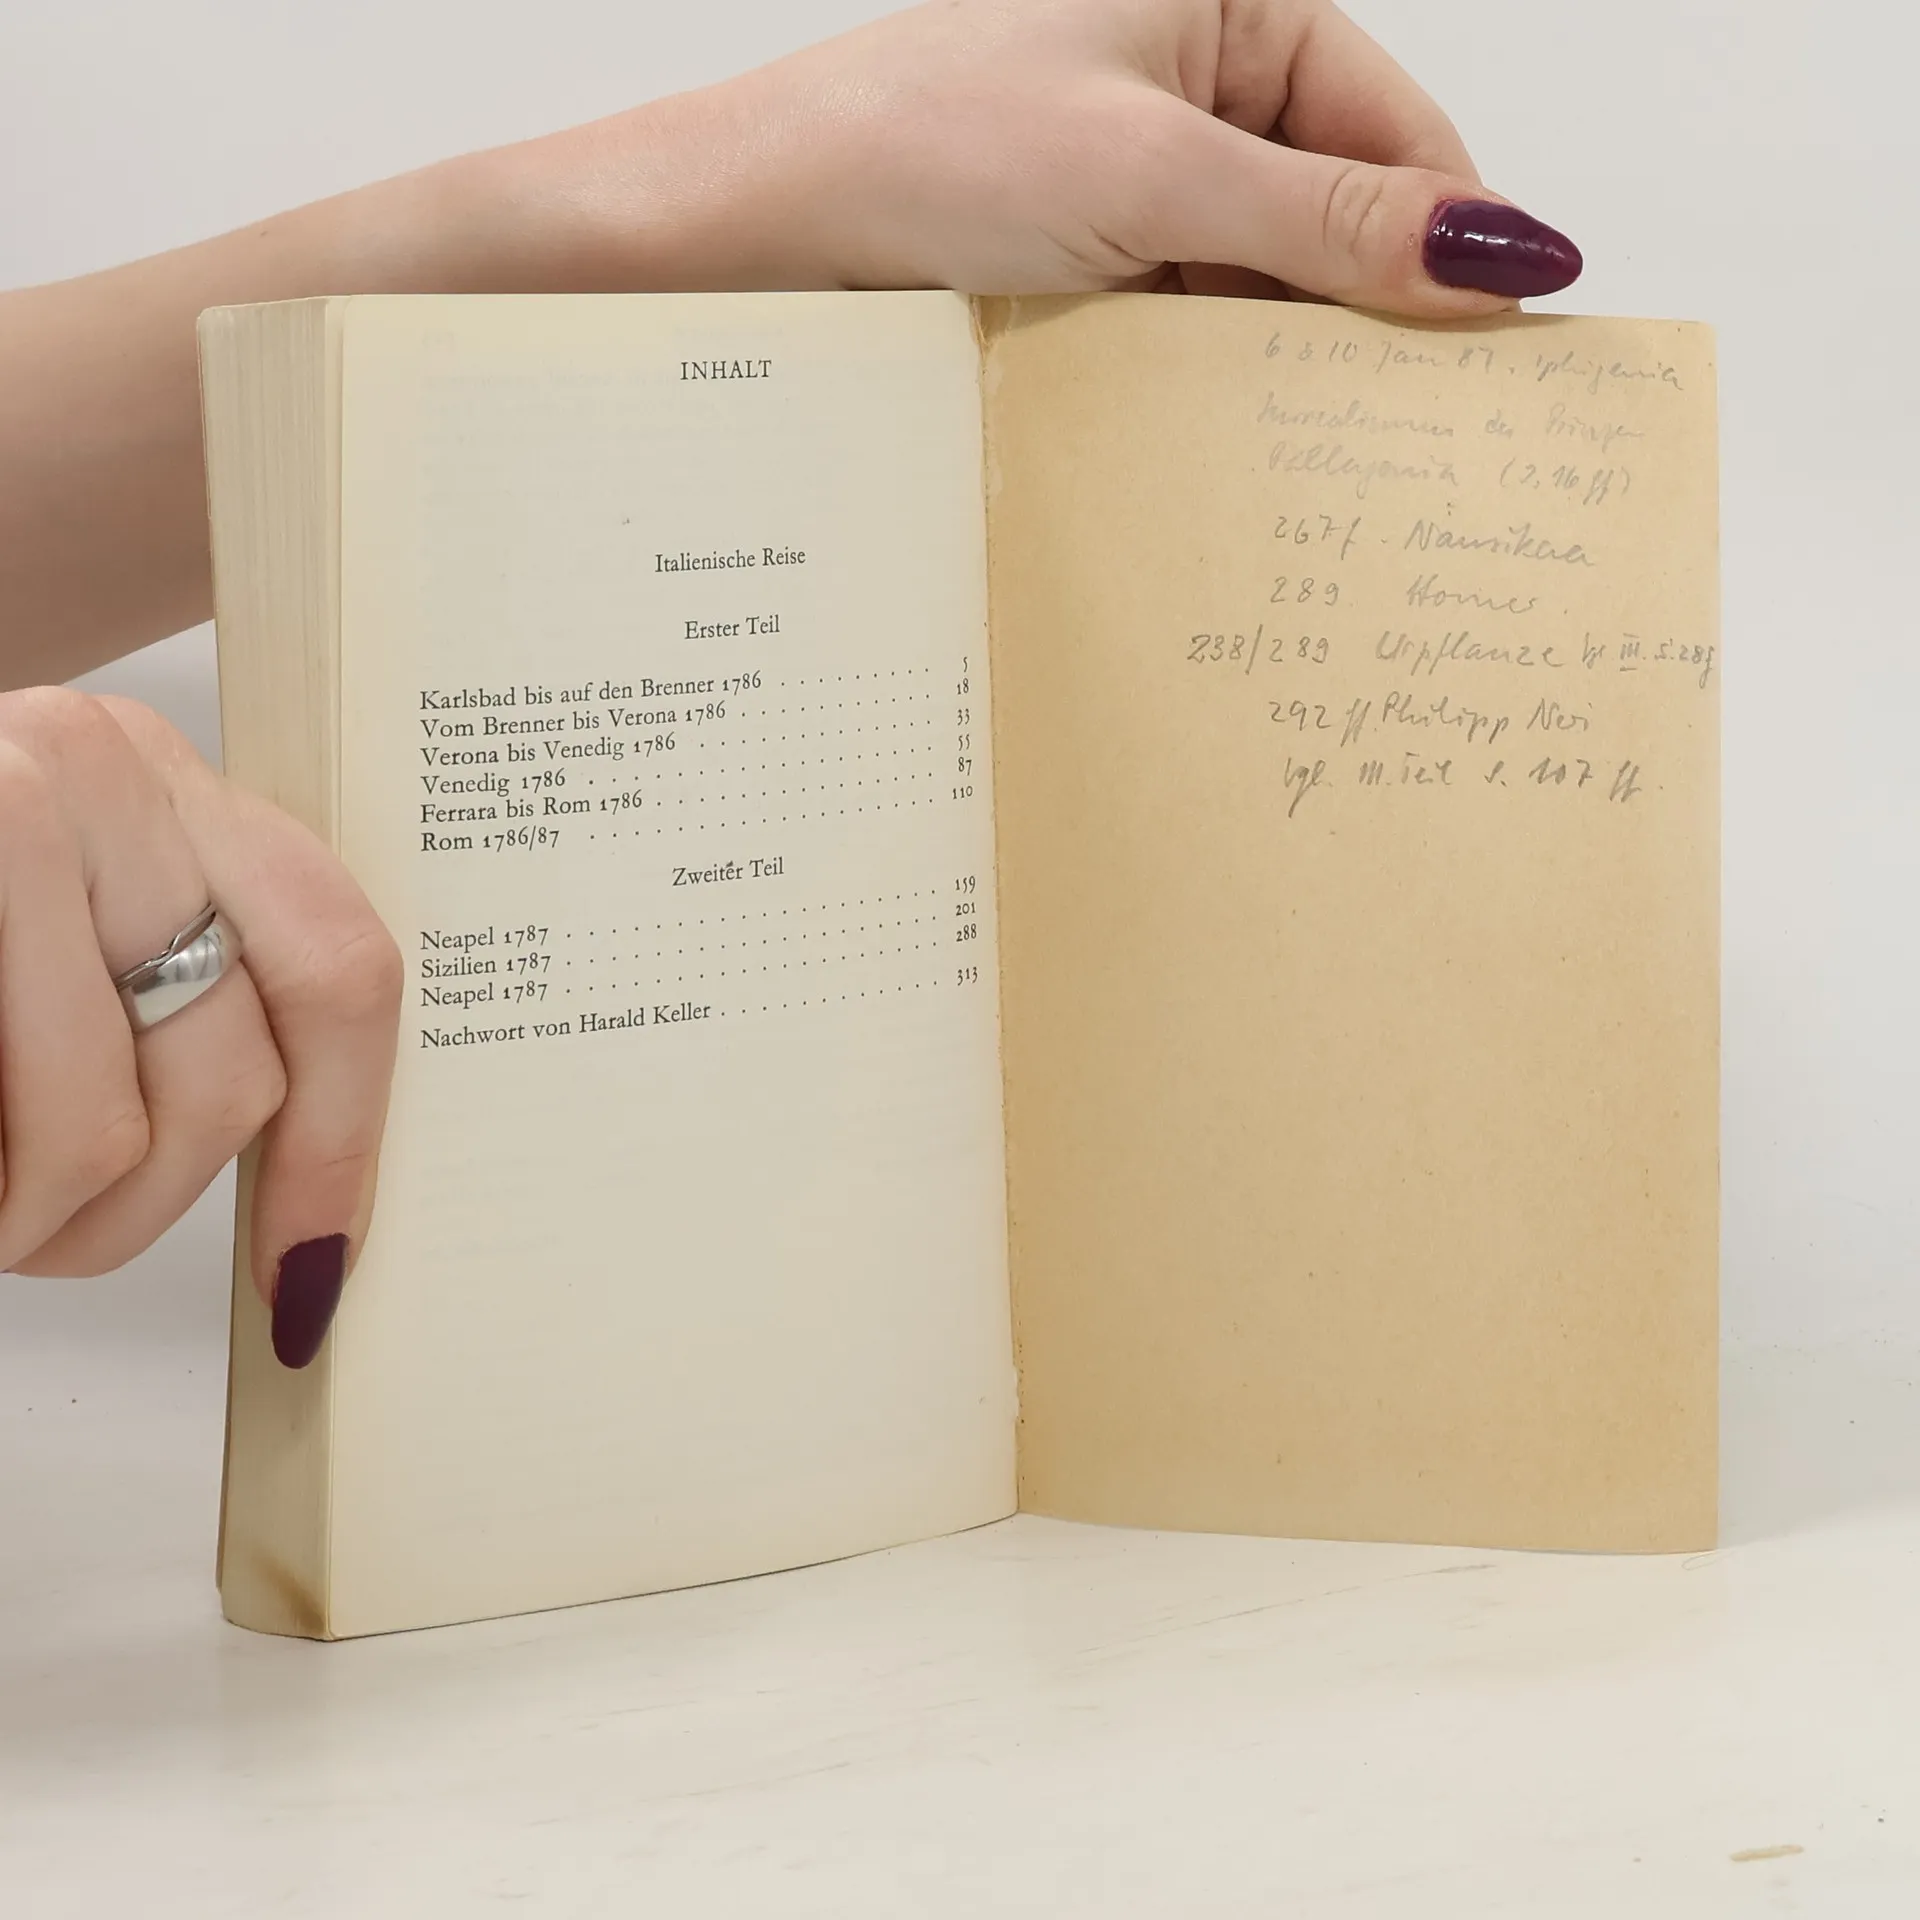 INHALT
Italienische Reise
Erster Teil
Karlsbad bis auf den Brenner 1786 . . . . . . . . . 5
Vom Brenner bis Verona 1786 . . . . . . . . . . 18
Verona bis Venedig 1786 . . . . . . . . . . . 33
Venedig 1786 . . . . . . . . . . . . . . . 55
Ferrara bis Rom 1786 . . . . . . . . . . . . 87
Rom 1786/87 . . . . . . . . . . . . . . . 110
Zweiter Teil
Neapel 1787 . . . . . . . . . . . . . . . . 159
Sizilien 1787 . . . . . . . . . . . . . . . . 201
Neapel 1787 . . . . . . . . . . . . . . . . 288
Nachwort von Harald Keller . . . . . . . . . . . 313
6 & 10 Jan 87. Iphigenia
Surrealismus des Prinzen
Pallagonia (2, 16 ff)
267 f. Nausikaa
289. Homer.
238/289 Urpflanze III. S. 289
292 ff. Philipp Neri
vgl. III. Teil S. 107 ff.